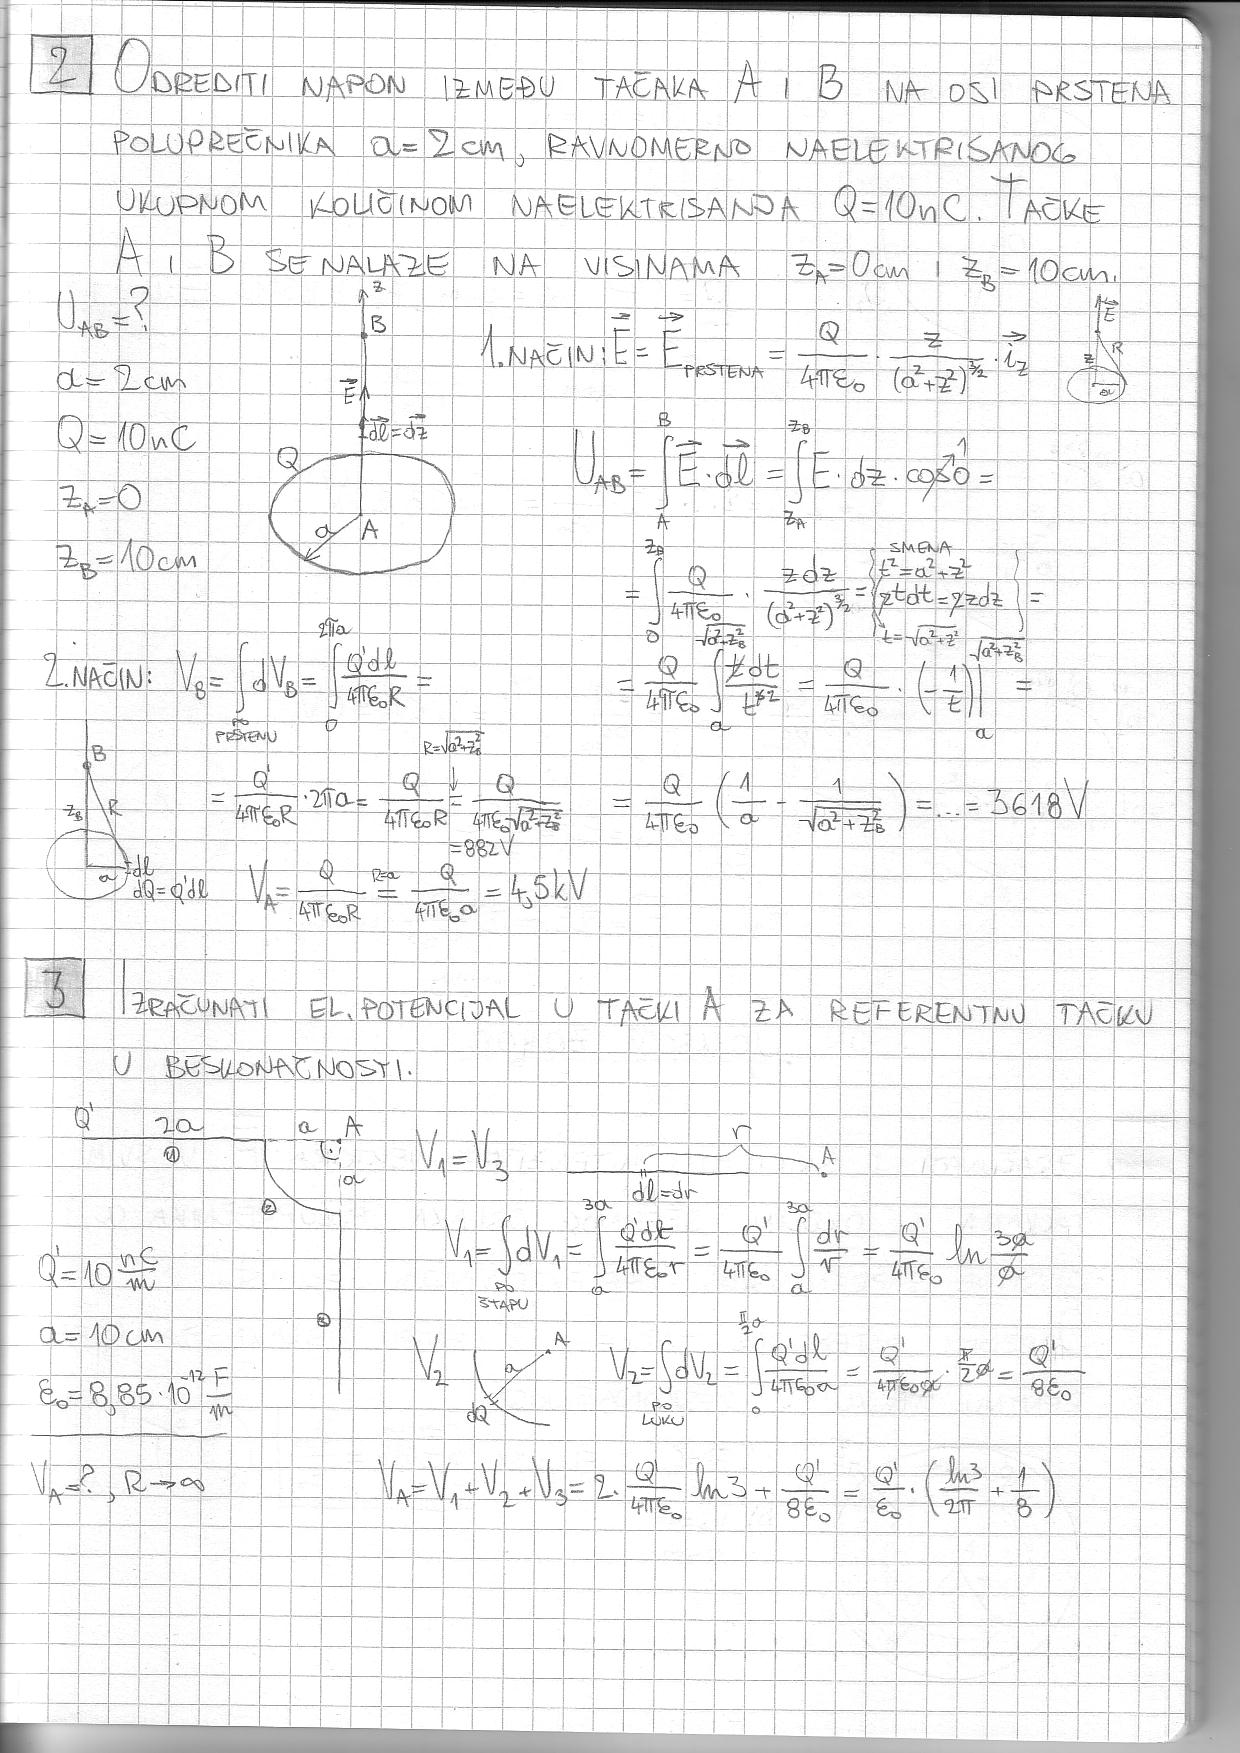 2 ODREDITI NAPON IZMEĐU TAČAKA A I B NA OSI PRSTENA
POLUPREČNIKA a=2cm, RAVNOMERNO NAELEKTRISANOG
UKUPNOM KOLIČINOM NAELEKTRISANJA Q=10nC. TAČKE
A I B SE NALAZE NA VISINAMA z_A=0cm I z_B=10cm.
U_AB=?
a=2cm
Q=10nC
z_A=0
z_B=10cm
z
B
E⃗
dl⃗=dz⃗
Q
a
A
1. NAČIN: E⃗ = E⃗_PRSTENA = Q/(4πε₀) · z/(a²+z²)^(3/2) · i⃗_z
E⃗
R
z
a
U_AB = ∫_A^B E⃗·dl⃗ = ∫_(z_A)^(z_B) E·dz·cos0 =
1
= ∫_0^(z_B) Q/(4πε₀) · z dz/(a²+z²)^(3/2) = { SMENA
t²=a²+z²
2tdt=2zdz
t=√(a²+z²) } =
= Q/(4πε₀) ∫_a^(√(a²+z_B²)) t dt/t^(3 2) = Q/(4πε₀) · (-1/t) |_a^(√(a²+z_B²)) =
= Q/(4πε₀) (1/a - 1/√(a²+z_B²)) = ... = 3618V
2. NAČIN: V_B = ∫_(PO PRSTENU) dV_B = ∫_0^(2πa) Q'dl/(4πε₀R) =
= Q'/(4πε₀R) · 2πa = Q/(4πε₀R) = Q/(4πε₀√(a²+z_B²))
R=√(a²+z_B²)
=882V
B
z_B
R
a
dl
dQ=Q'dl
V_A = Q/(4πε₀R) = Q/(4πε₀a) = 4,5kV
R=a
3 IZRAČUNATI EL. POTENCIJAL U TAČKI A ZA REFERENTNU TAČKU
U BESKONAČNOSTI.
Q'
2a
a
A
1
a
2
3
Q'=10 nC/m
a=10cm
ε₀=8,85·10⁻¹² F/m
V_A=?, R→∞
V₁=V₃
r
A
dl=dr
V₁ = ∫_(PO ŠTAPU) dV₁ = ∫_a^(3a) Q'dl/(4πε₀r) = Q'/(4πε₀) ∫_a^(3a) dr/r = Q'/(4πε₀) ln 3a/a
V₂
a
A
dQ
V₂ = ∫_(PO LUKU) dV₂ = ∫_0^(π/2 a) Q'dl/(4πε₀a) = Q'/(4πε₀a) · π/2 a = Q'/(8ε₀)
V_A = V₁+V₂+V₃ = 2· Q'/(4πε₀) ln3 + Q'/(8ε₀) = Q'/ε₀ · (ln3/(2π) + 1/8)